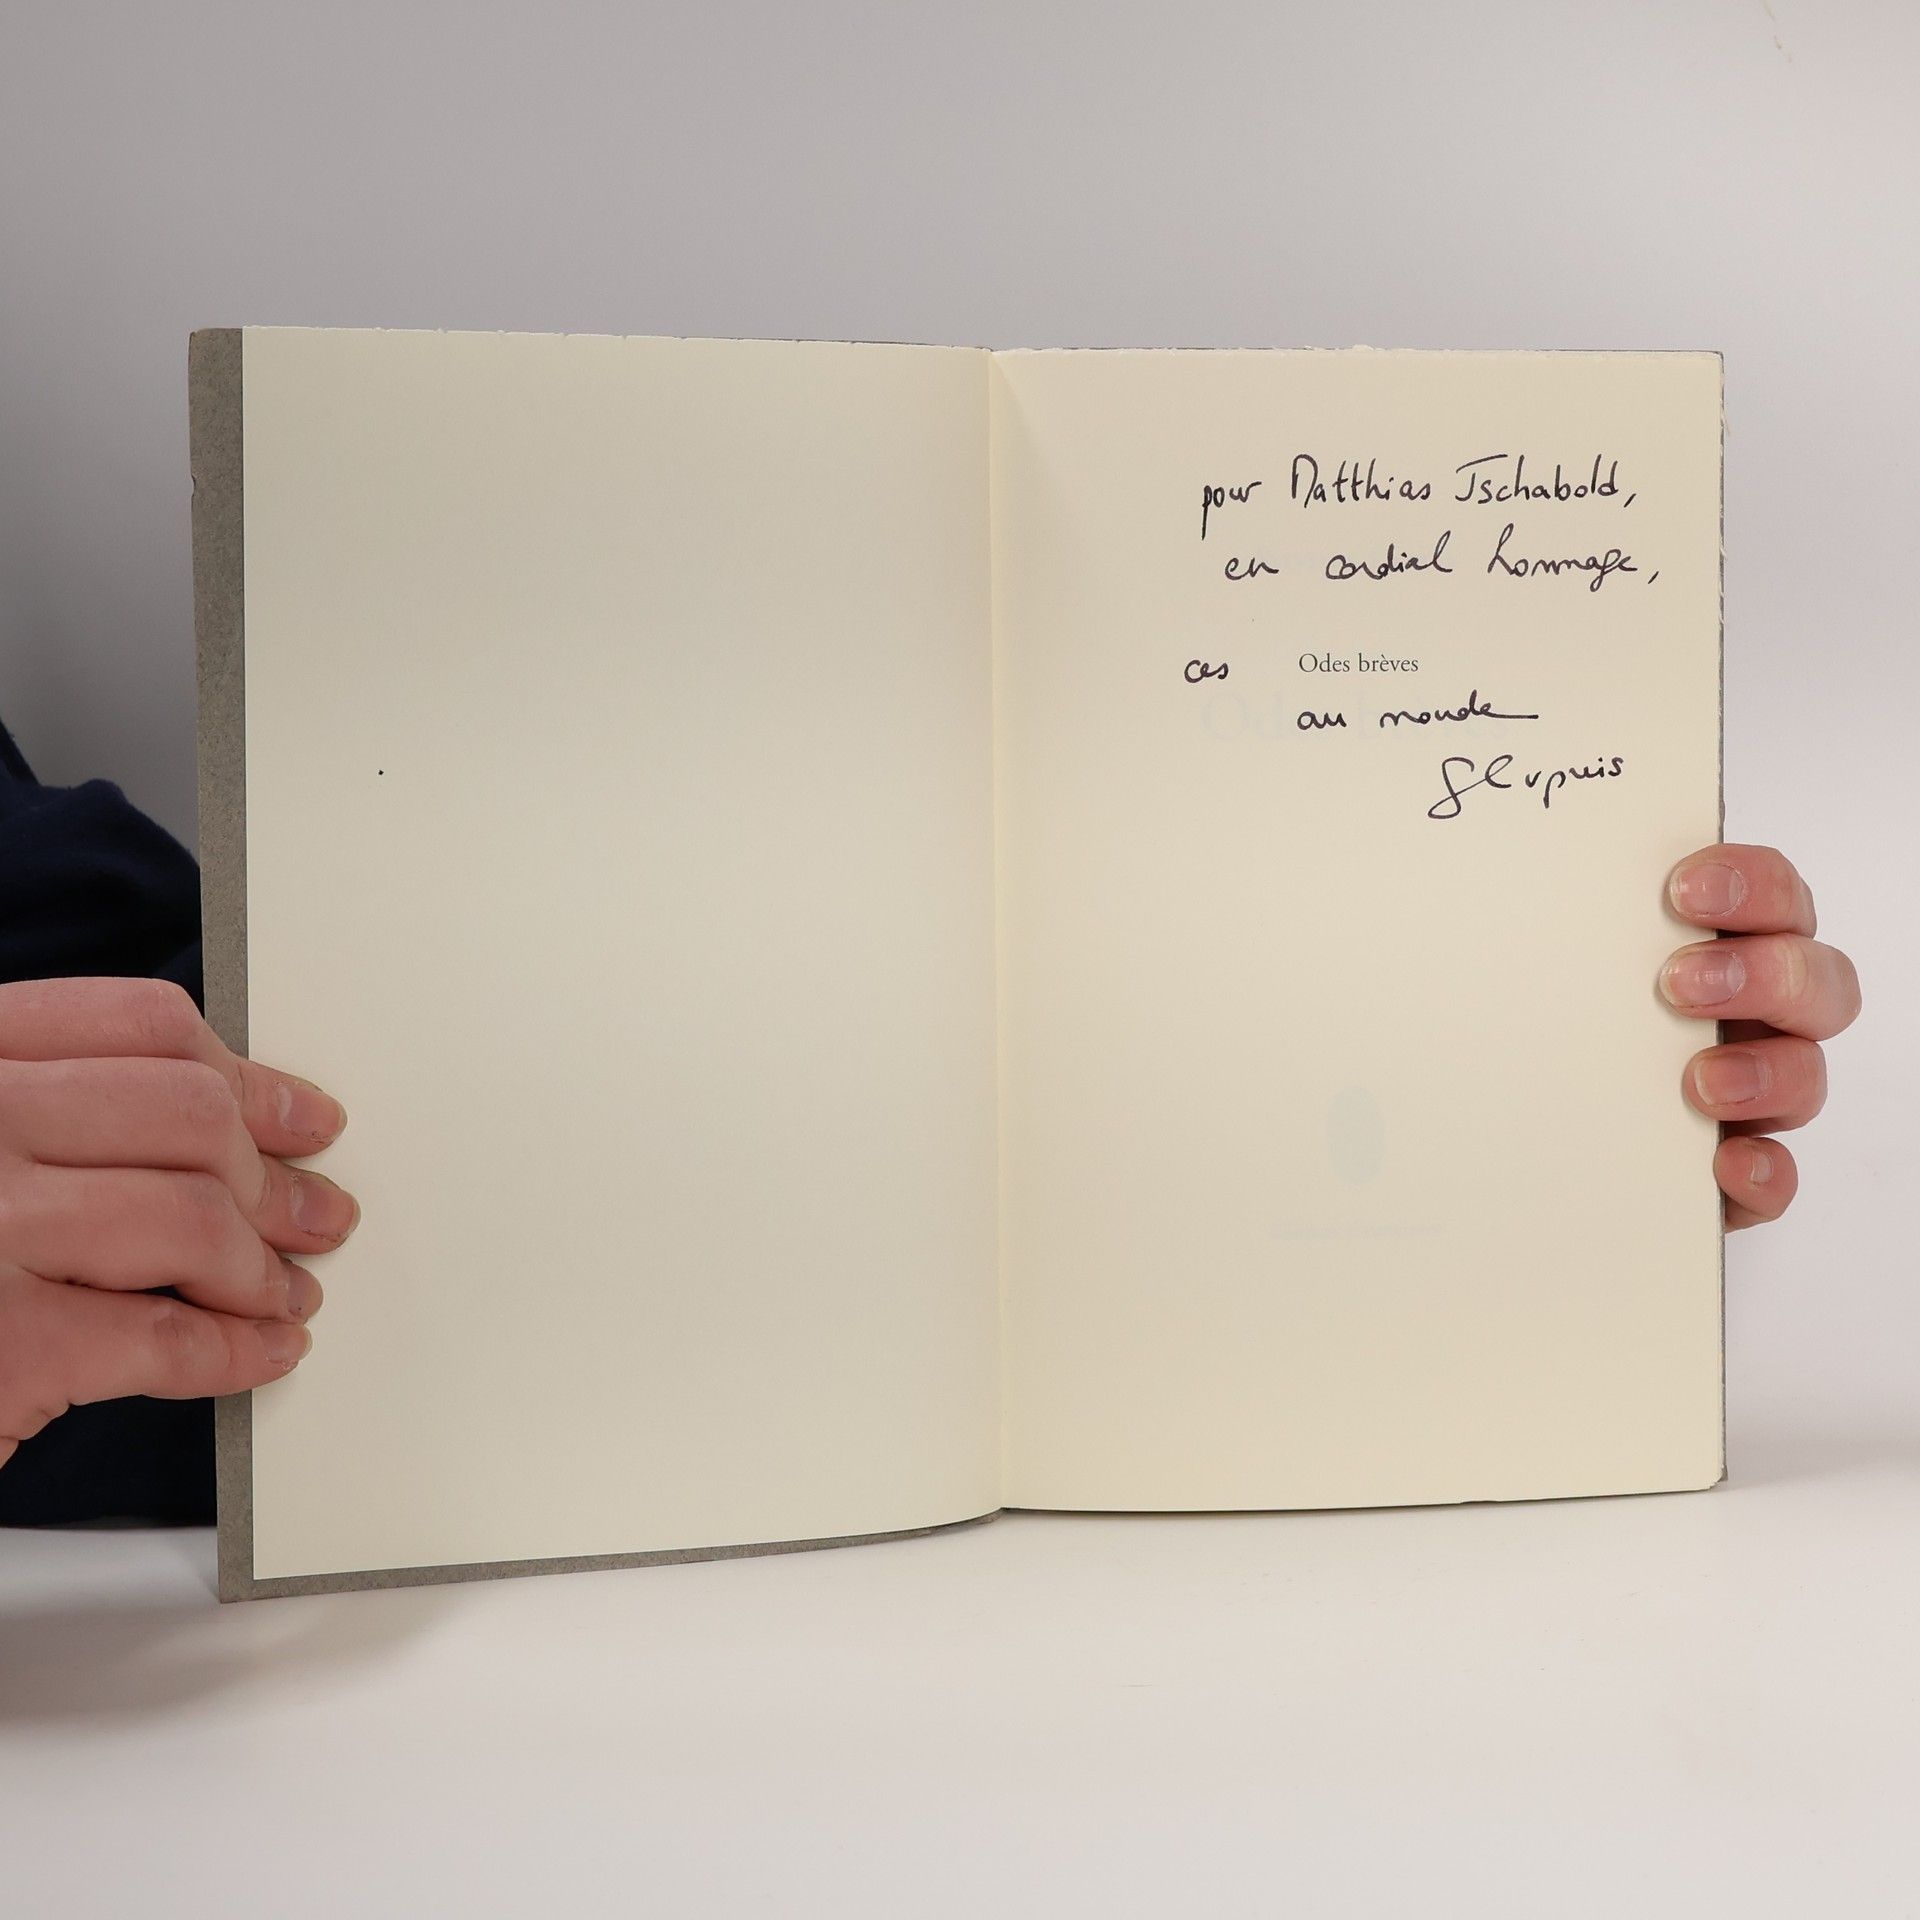 pour Matthias Tschabold,
en cordial hommage,
ces Odes brèves
au monde